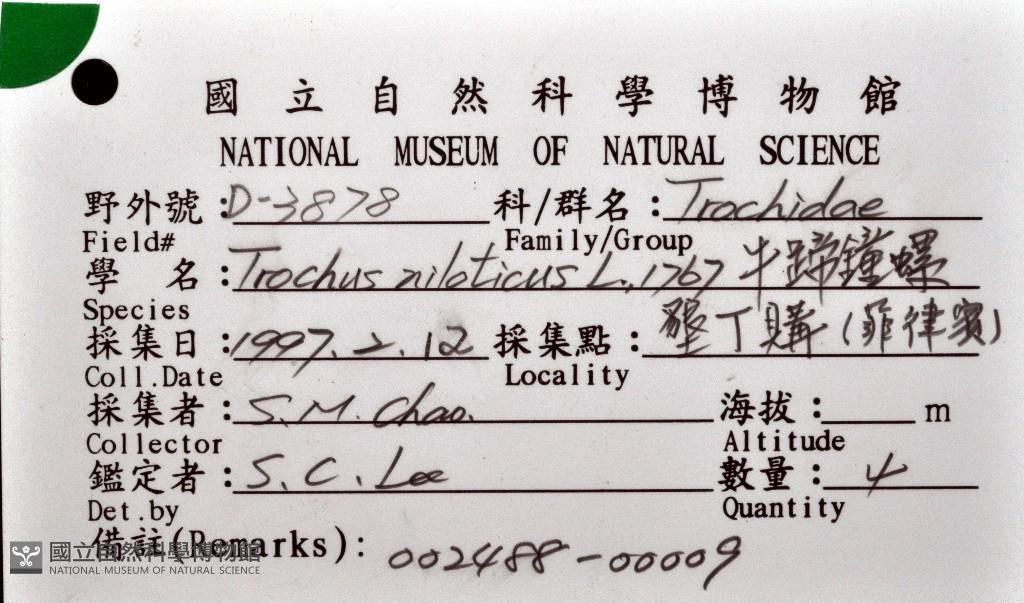 國立自然科學博物館
NATIONAL MUSEUM OF NATURAL SCIENCE
野外號：D-3878 科/群名：Trochidae
Field# Family/Group
學名：Trochus niloticus L., 1767 牛蹄鐘螺
Species
採集日：1997.2.12 採集點：墾丁購（菲律賓）
Coll.Date Locality
採集者：S.M. Chao. 海拔： m
Collector Altitude
鑑定者：S.C. Lee 數量：4
Det.by Quantity
備註(Remarks)：002488-00009
國立自然科學博物館
NATIONAL MUSEUM OF NATURAL SCIENCE